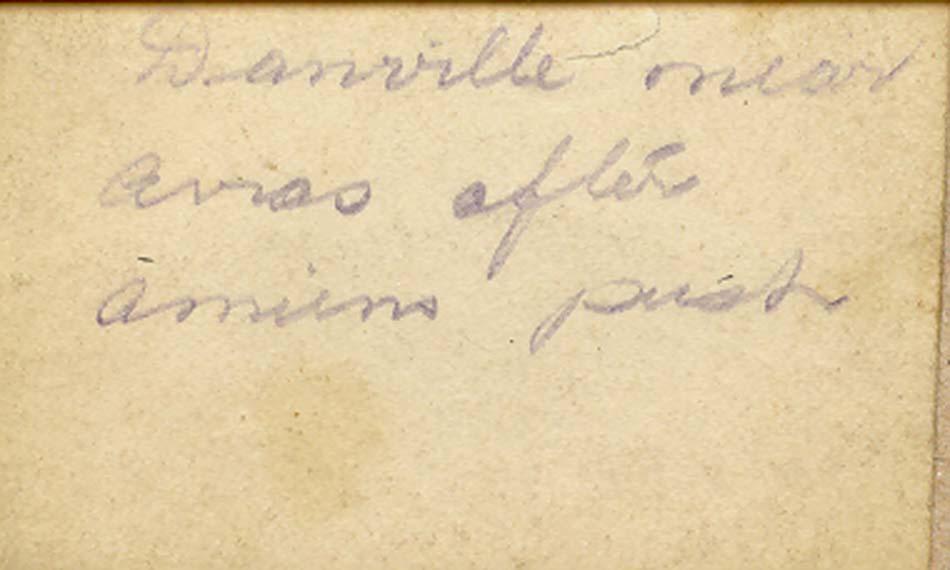 Danville near
Arras after
Amiens push